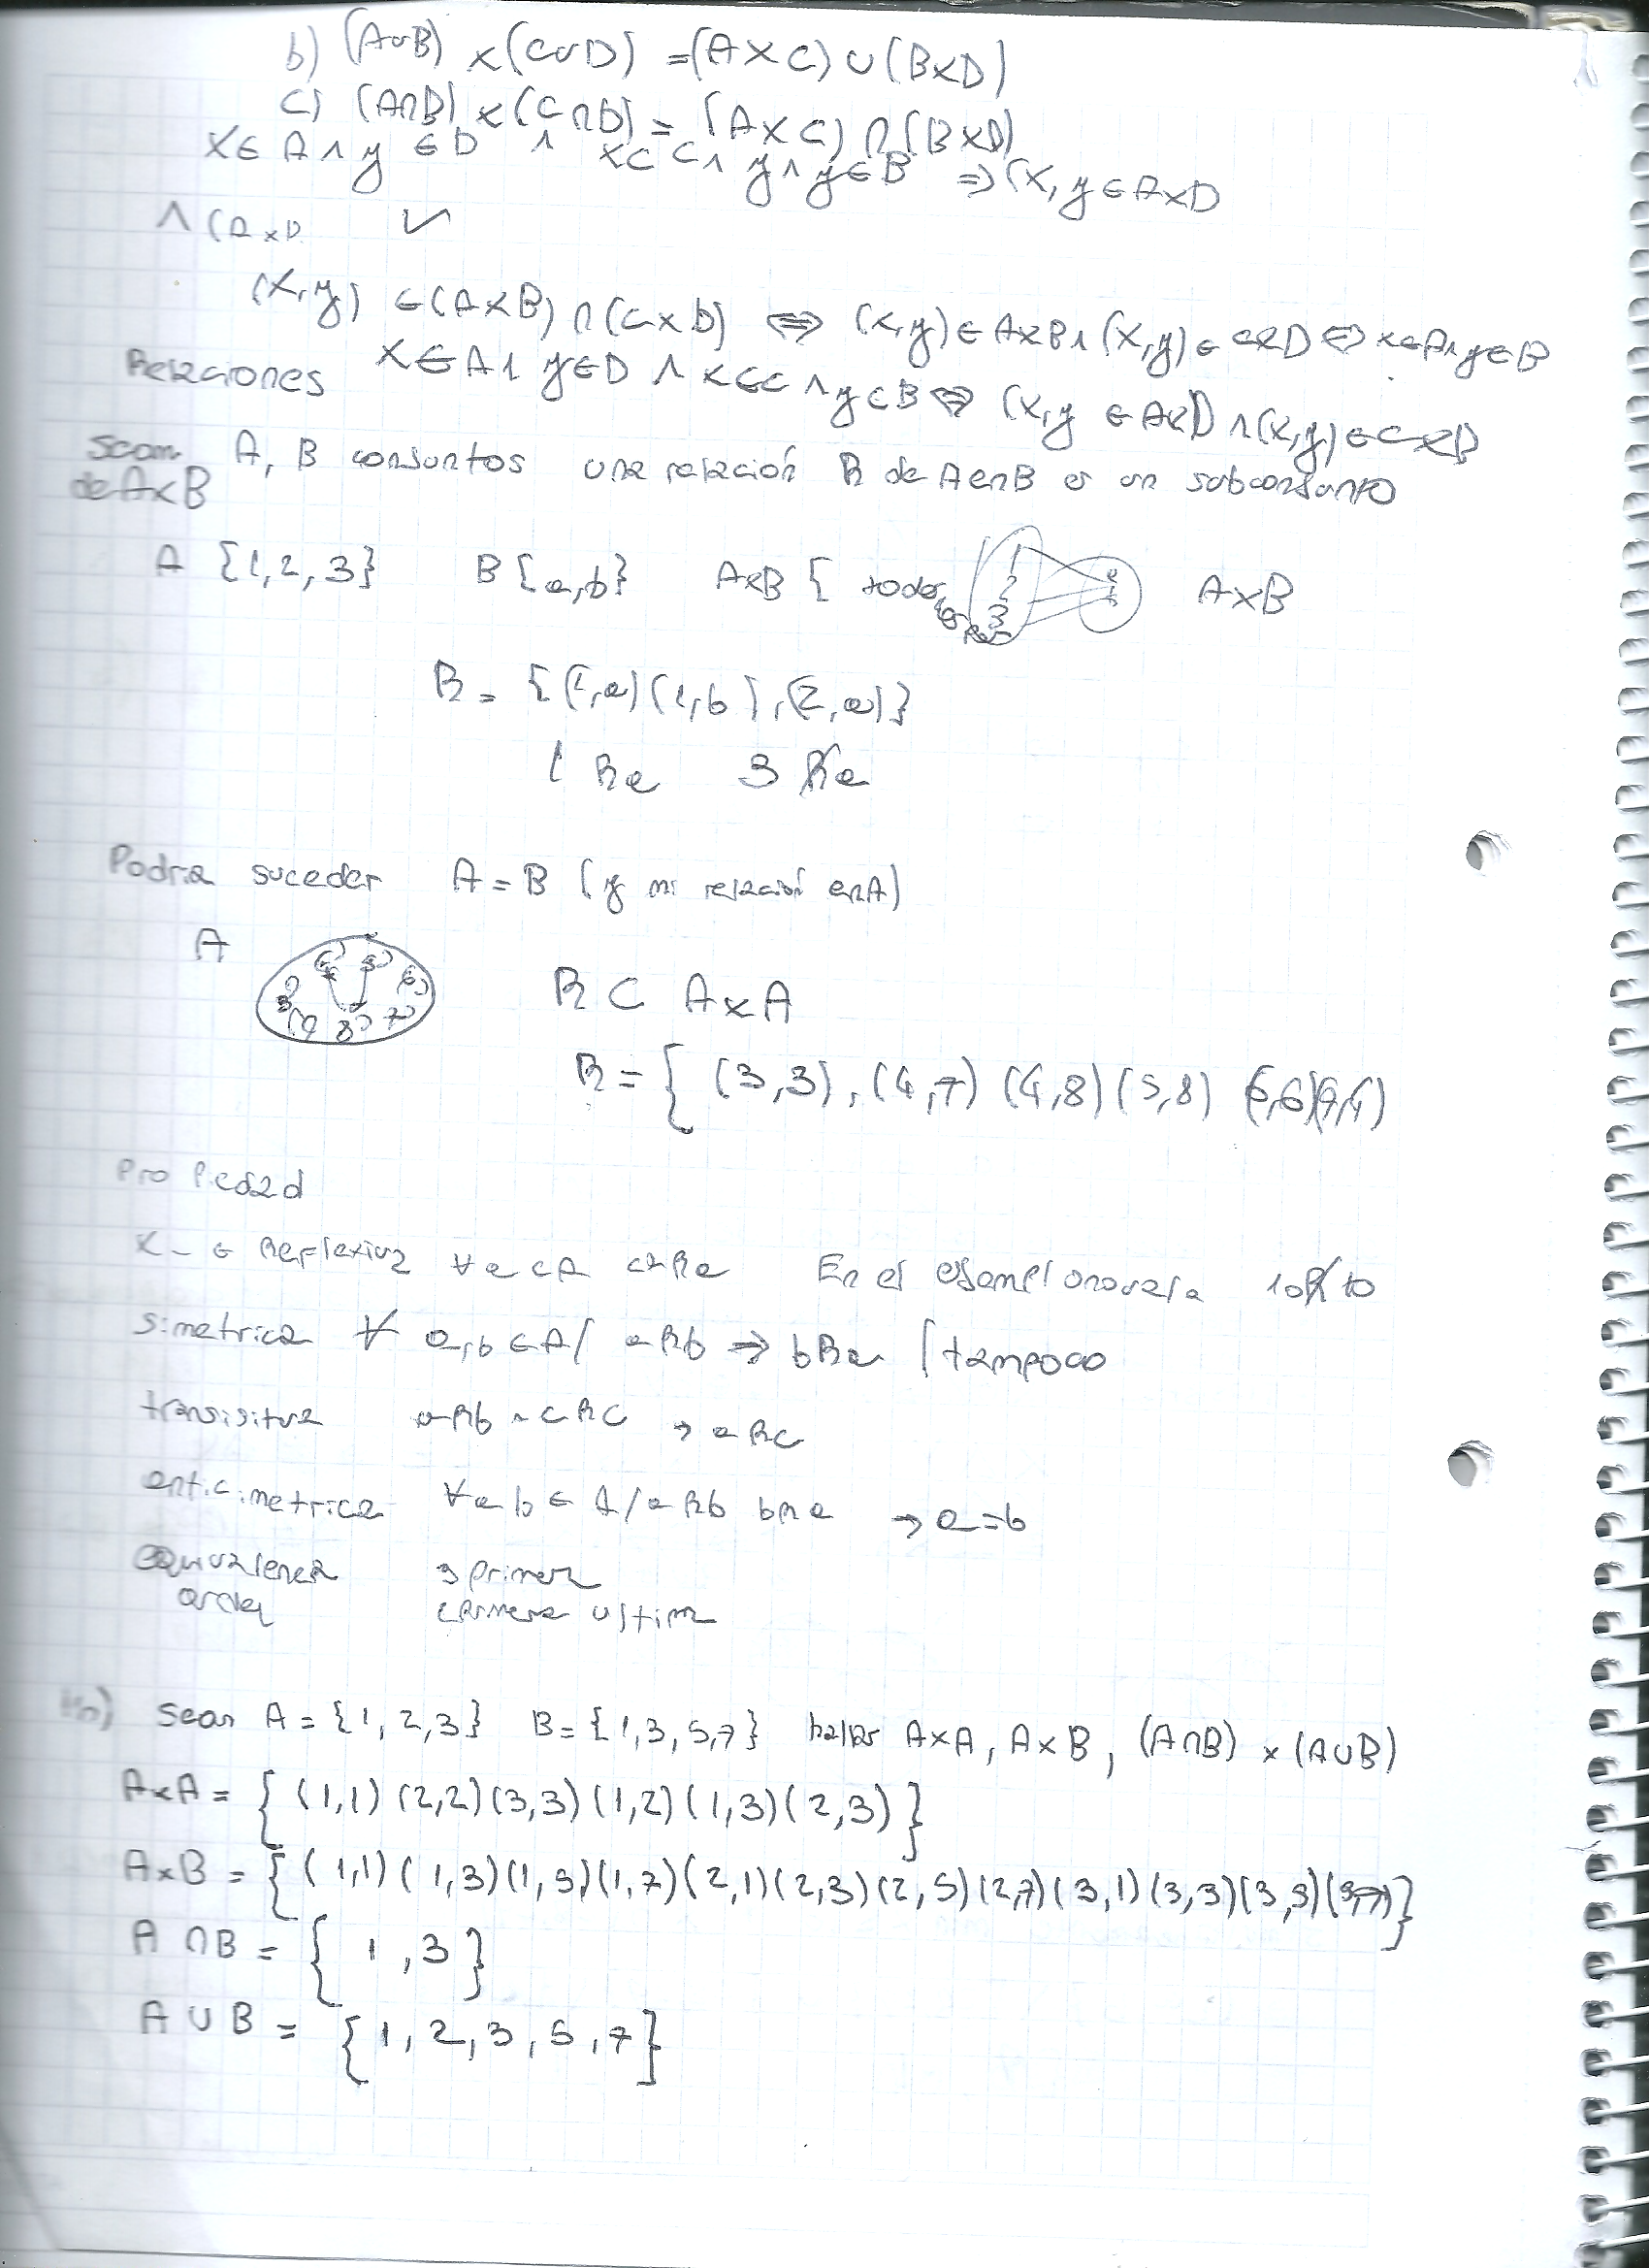 b) (A∪B) x (C∪D) = (A x C) ∪ (B x D)
c) (A∩B) x (C∩D) = (A x C) ∩ (B x D)
x ∈ A ∧ y ∈ D ∧ x ⊂ C ∧ y ∧ y ∈ B ⇒ (x, y ∈ A x D
∧ (A x D
(x, y) ∈ (A x B) ∩ (C x D) ⇔ (x, y) ∈ A x B ∧ (x, y) ∈ C x D ⇔ x ∈ A ∧ y ∈ B
x ∈ A ∧ y ∈ D ∧ x ∈ C ∧ y ⊂ B ⇔ (x, y ∈ A x D ∧ (x, y) ∈ C x B
Relaciones
Sean A, B conjuntos una relación R de A en B es un subconjunto
de A x B
A {1, 2, 3} B {a, b} A x B { todos A x B
1 2 3 a b
R = {(1, a) (1, b), (2, a)}
1 R a 3 R̸ a
Podria suceder A = B (y mi relación en A)
A
R ⊂ A x A
R = { (3,3), (4,7) (4,8) (5,8) (6,6) (9,9)
Propiedad
Reflexiva ∀ a ⊂ A a R a En el 10 R̸ 10
simetrica ∀ a, b ∈ A / a R b ⇒ b R a (tampoco
transisitva a R b ∧ c R c → a R c
anticimetrica ∀ a b ∈ A / a R b b R a → a = b
equivalencia 3 primera
orden primera ultima
Sean A = {1, 2, 3} B = {1, 3, 5, 7} hallar A x A, A x B, (A∩B) x (A∪B)
A x A = { (1,1) (2,2) (3,3) (1,2) (1,3) (2,3) }
A x B = { (1,1) (1,3) (1,5) (1,7) (2,1) (2,3) (2,5) (2,7) (3,1) (3,3) (3,5) (3,7) }
A ∩ B = { 1, 3 }
A ∪ B = { 1, 2, 3, 5, 7 }